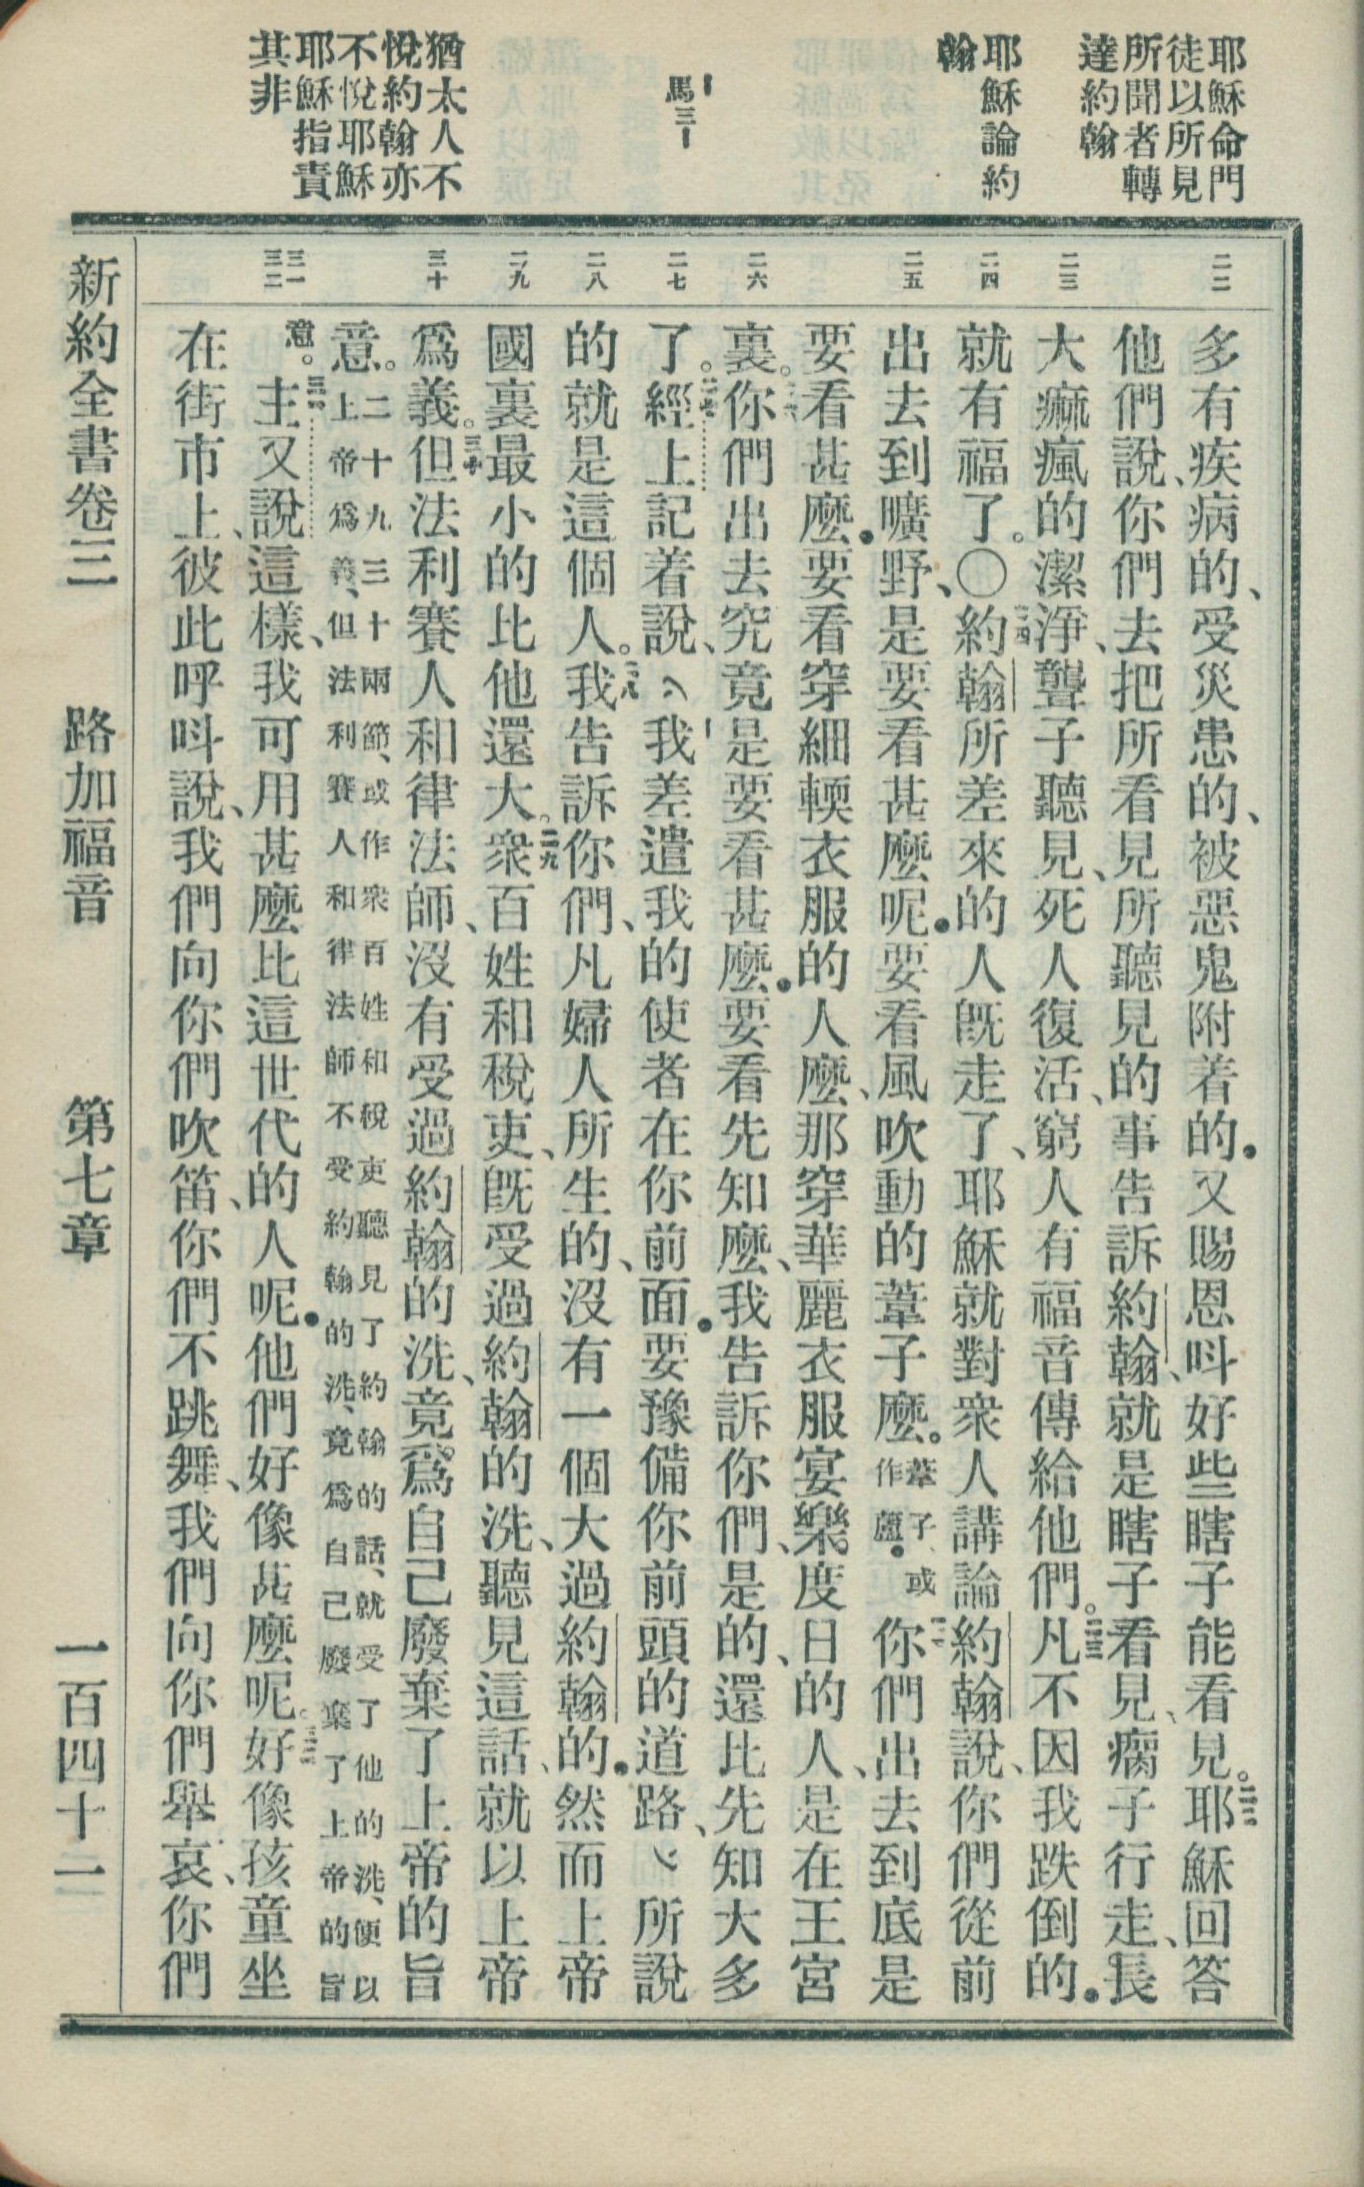 耶穌命門
徒以所見
所聞者轉
達約翰
耶穌論約
翰
馬三1
猶太人不
悅約翰亦
不悅耶穌
耶穌指責
其非
二二
多有疾病的、受災患的、被惡鬼附着的．又賜恩呌好些瞎子能看見。二二耶穌回答
他們說、你們去把所看見所聽見的事告訴約翰、就是瞎子看見、瘸子行走、長
二三
大痲瘋的潔淨、聾子聽見、死人復活、窮人有福音傳給他們。二三凡不因我跌倒的．
二四
就有福了。〇二四約翰所差來的人旣走了、耶穌就對衆人講論約翰說、你們從前
二五
出去到曠野、是要看甚麼呢．要看風吹動的葦子麼。葦子、或作蘆．二五你們出去到底是
要看甚麼．要看穿細輭衣服的人麼、那穿華麗衣服宴樂度日的人、是在王宮
二六
裏。二六你們出去究竟是要看甚麼．要看先知麼、我告訴你們、是的、還比先知大多
二七
了。二七經上記着說、〵1我差遣我的使者在你前面．要豫備你前頭的道路、〵所說
二八
的就是這個人。二八我告訴你們、凡婦人所生的、沒有一個大過約翰的．然而上帝
二九
國裏最小的比他還大。二九衆百姓和稅吏、旣受過約翰的洗、聽見這話、就以上帝
三十
爲義。三十但法利賽人和律法師、沒有受過約翰的洗、竟爲自己廢棄了上帝的旨
意。二十九三十兩節、或作衆百姓和稅吏聽見了約翰的話、就受了他的洗、便以
上帝爲義、但法利賽人和律法師不受約翰的洗、竟爲自己廢棄了上帝的旨
三一
三二
意。三一主又說這樣、我可用甚麼比這世代的人呢．他們好像甚麼呢。三二好像孩童坐
在街市上、彼此呼呌說、我們向你們吹笛、你們不跳舞、我們向你們舉哀、你們
新約全書卷三　路加福音　第七章　一百四十一